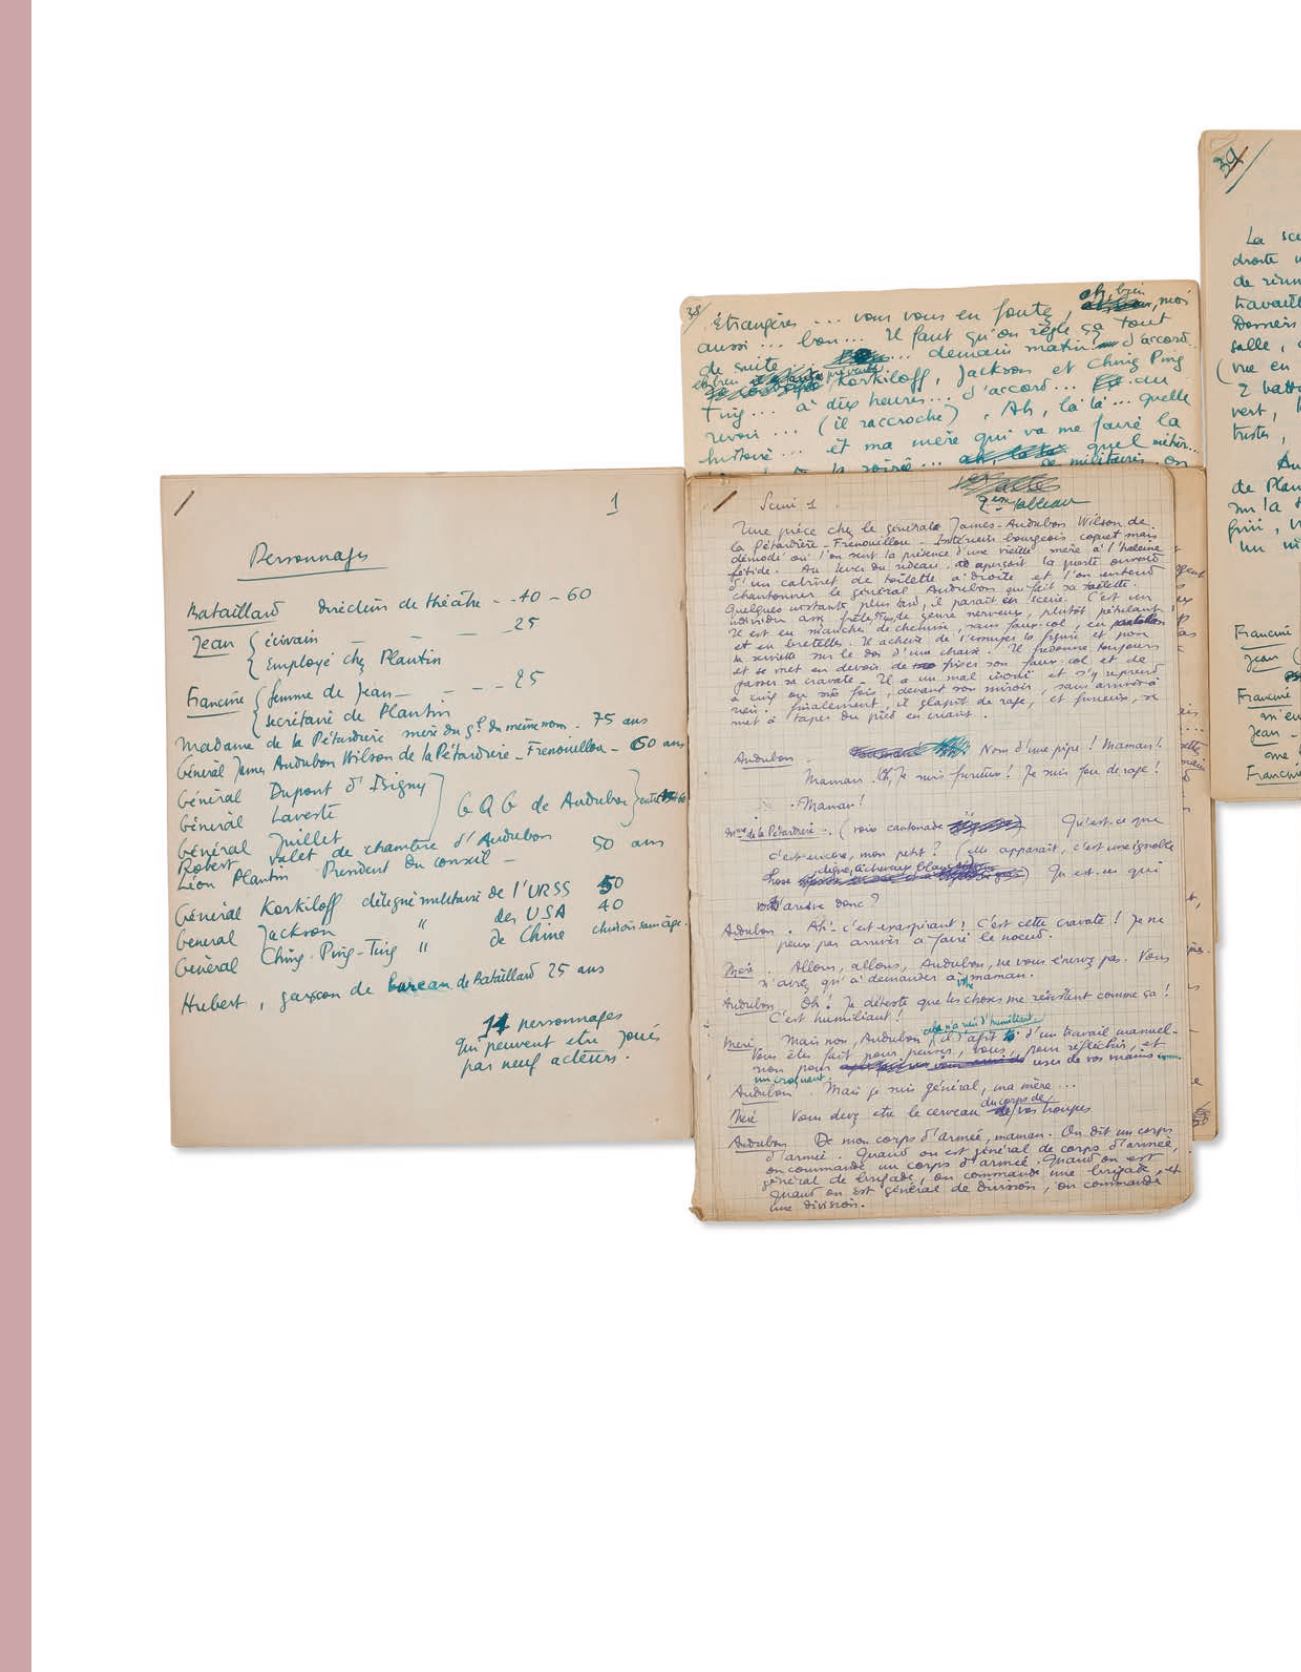 1
Personnages
Bataillard directeur de théâtre - - 40 - 60
Jean { écrivain - - 25
{ Employé chez Plantin
Francine { femme de Jean - - - - 25
{ secrétaire de Plantin
Madame de la Pétardière mère du gl. du même nom - 75 ans
Général James Audubon Wilson de la Pétardière - Frenouillou - 60 ans
Général Dupont d'Isigny
Général Laveste } G Q G de Audubon } entre
Général Juillet
Robert valet de chambre d'Audubon
Léon Plantin Président du conseil - 50 ans
Général Korkiloff délégué militaire de l'URSS 50
Général Jackson " des USA 40
Général Ching-Ping-Ting " de Chine chinois sans âge.
Hubert, garçon de bureau de Bataillard 25 ans
14 personnages
qui peuvent être joués
par neuf acteurs.
38/
Étrangères ... vous vous en foutez, ah, bien, moi
aussi ... bon ... Il faut qu'on règle ça tout
de suite ... demain matin! d'accord...
Korkiloff, Jackson et Ching Ping
Ting ... à dix heures ... d'accord ... au
revoir ... (il raccroche). Ah, là là ... quelle
histoire ... et ma mère qui va me faire la
quel métier...
la soirée ... de militaires on
Scène 1
2ème tableau
Une pièce chez le général James-Audubon Wilson de
la Pétardière - Frenouillou - Intérieur bourgeois coquet mais
démodé où l'on sent la présence d'une vieille mère à l'haleine
fétide. Au lever du rideau on aperçoit la porte ouverte
d'un cabinet de toilette à droite et l'on entend
chantonner le général Audubon qui fait sa toilette.
Quelques instants plus tard, il paraît en scène. C'est un
individu assez frêle, de genre nerveux, plutôt pétulant.
Il est en manches de chemise, sans faux-col, en pantalon
et en bretelles. Il achève de s'essuyer la figure et pose
la serviette sur le dos d'une chaise. Il fredonne toujours
et se met en devoir de fixer son faux col et de
passer sa cravate. Il a un mal inouï et s'y reprend
à cinq ou six fois, devant son miroir, sans arriver à
rien. Finalement, il glapit de rage, et furieux, se
met à taper du pied en criant.
Audubon. Nom d'une pipe! Maman!
Maman. Oh, Je suis furieux! Je suis fou de rage!
Maman!
Mme de la Pétardière. (voix cantonade) Qu'est-ce que
c'est encore, mon petit? (elle apparaît, c'est une ignoble
chose digne, à cheveux blancs) Qu'est-ce qui
vous arrive donc?
Audubon. Ah! c'est exaspérant! C'est cette cravate! Je ne
peux pas arriver à faire le noeud.
Mère. Allons, allons, Audubon, ne vous énervez pas. Vous
n'avez qu'à demander à votre maman.
Audubon. Oh! Je déteste que les choses me résistent comme ça!
C'est humiliant!
cela n'a rien d'humiliant
Mère. Mais non, Audubon, il s'agit d'un travail manuel.
Vous êtes fait pour penser, vous, pour réfléchir, et
non pour user de vos mains comme
un croquant.
Audubon. Mais je suis général, ma mère...
Mère Vous devez être le cerveau du corps de vos troupes
Audubon De mon corps d'armée, maman. On dit un corps
d'armée. Quand on est général de corps d'armée,
on commande un corps d'armée. Quand on est
général de brigade, on commande une brigade, et
quand on est général de division, on commande
une division.
39/
La
droite
de
travail
Derrière
salle,
(vue en
2
vert,
tristes,
de Plan
sur la
Francine
Jean (
Francine
m'en
Jean -
Francine